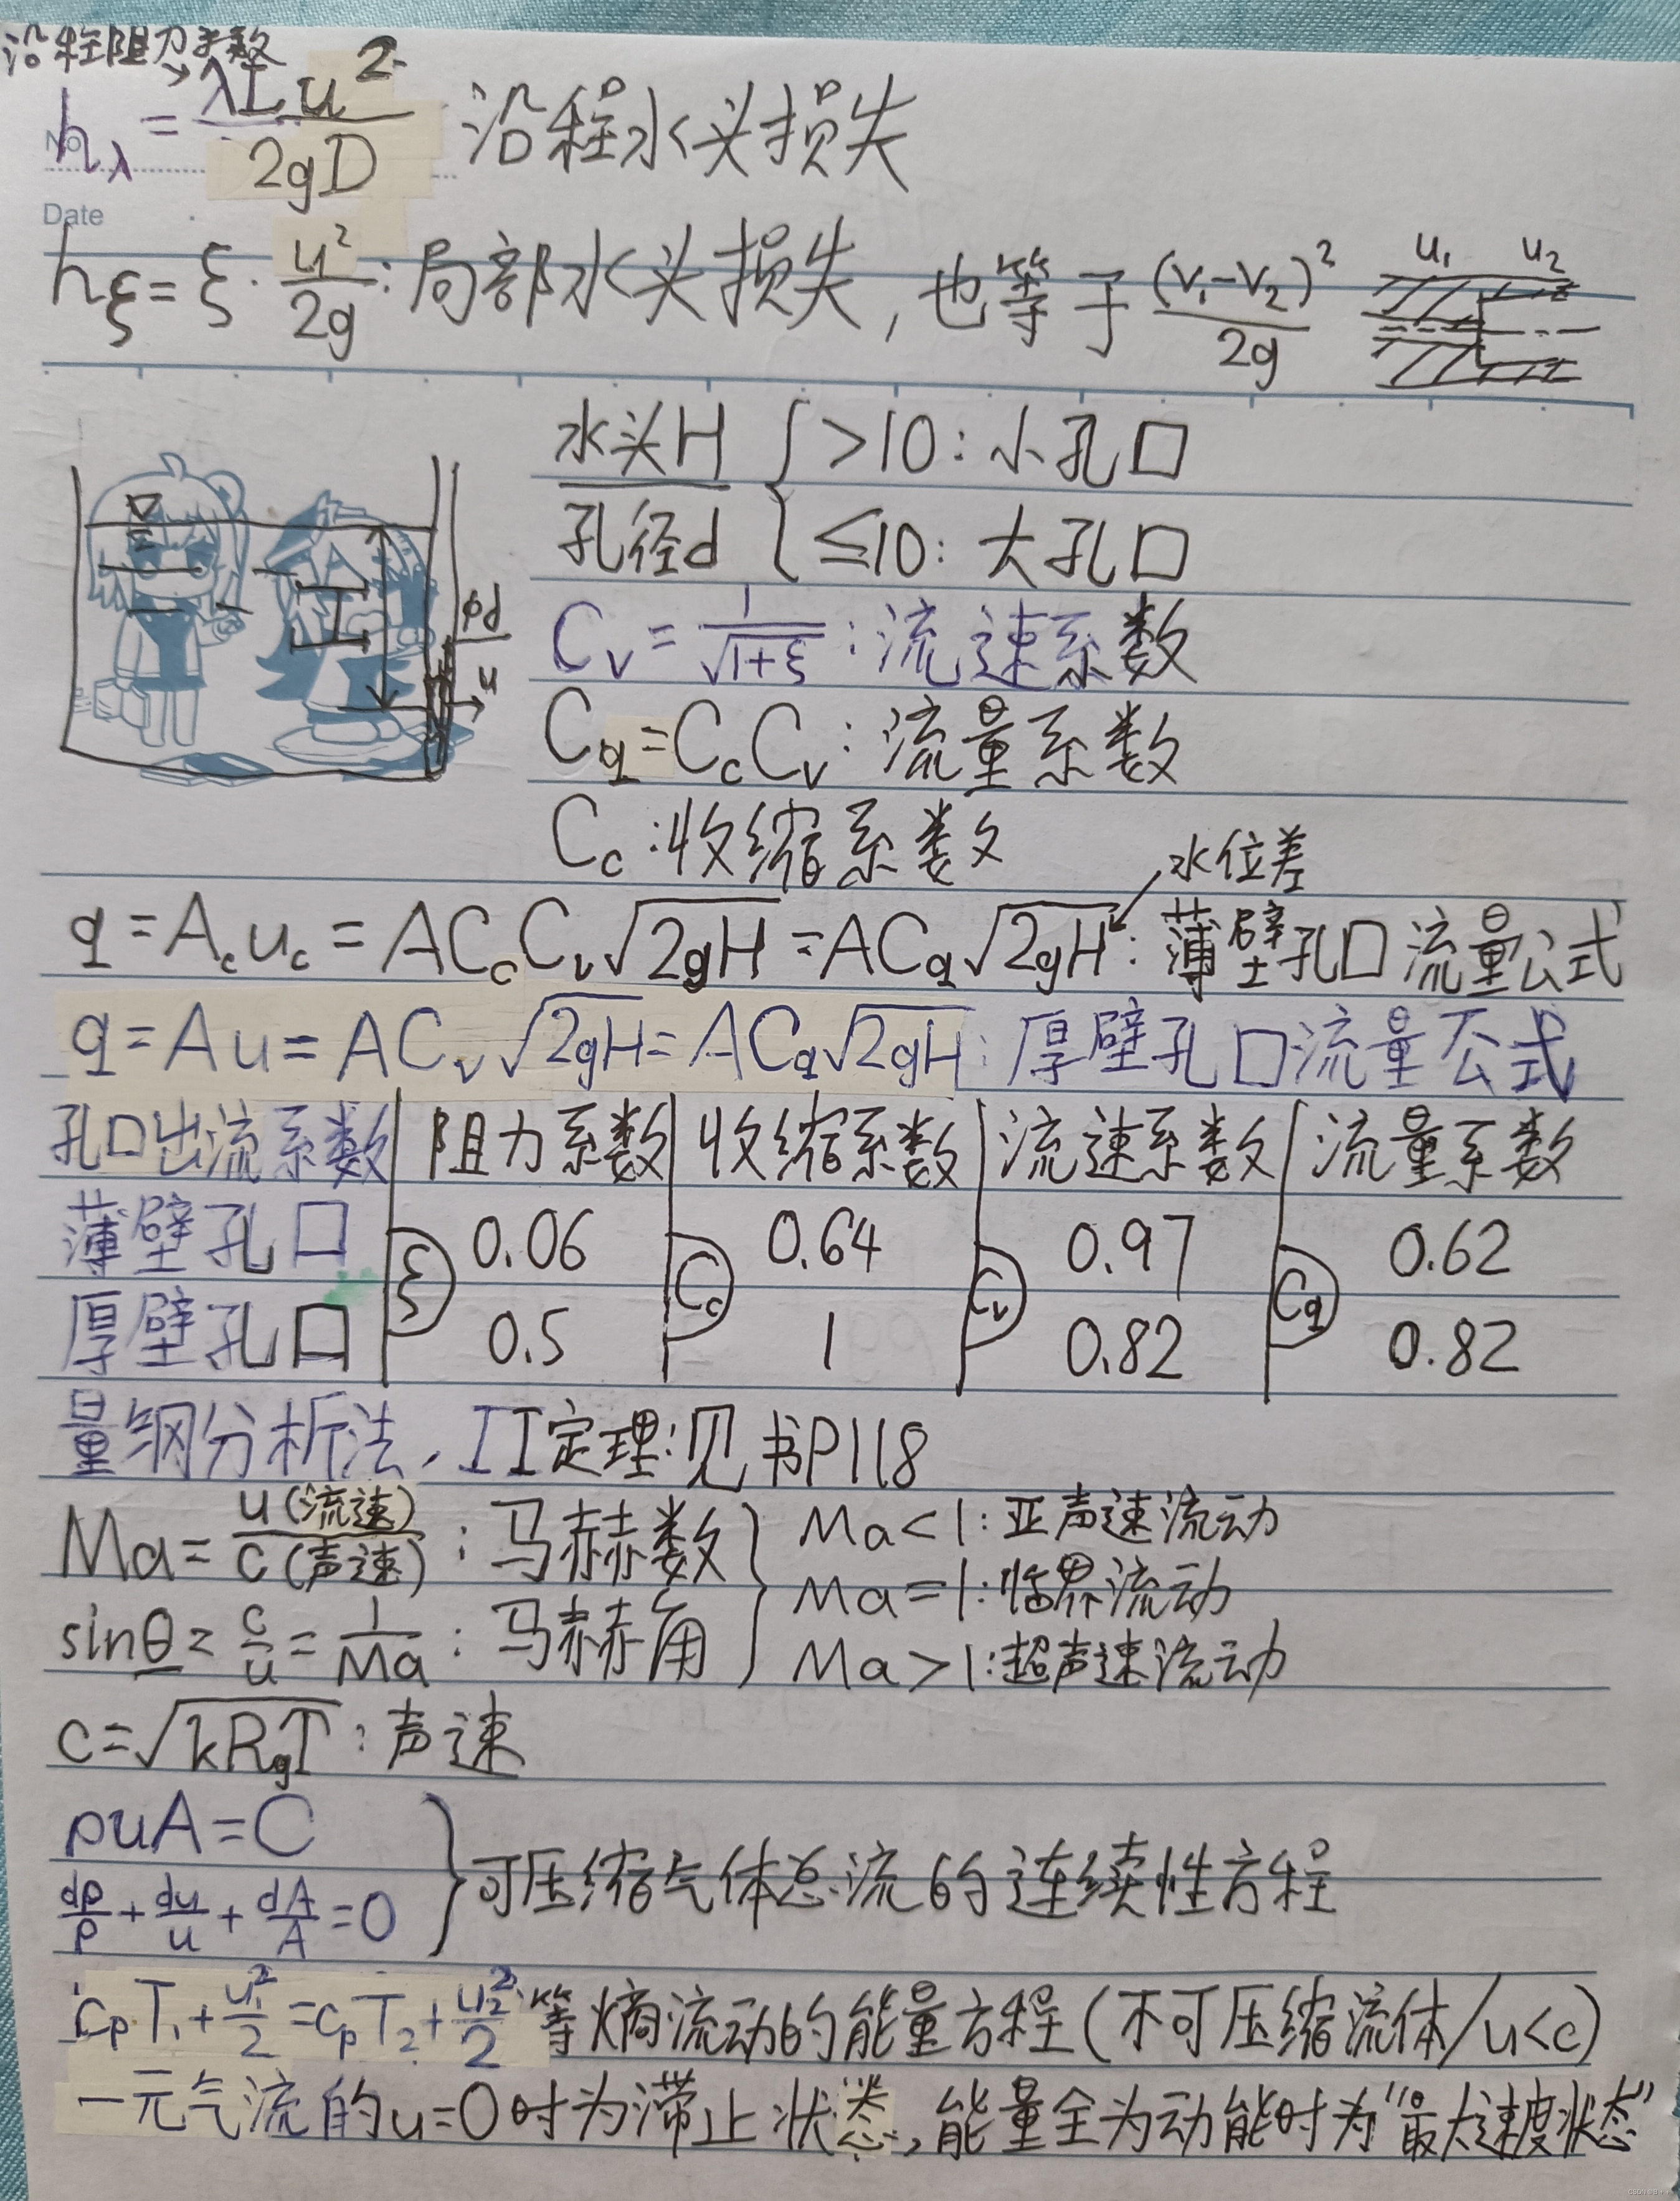 沿程阻力系数
No.
hλ = λLu²/2gD 沿程水头损失
Date
hξ = ξ·u²/2g : 局部水头损失, 也等于 (V₁-V₂)²/2g u₁ u₂
水头H/孔径d { >10: 小孔口
≤10: 大孔口
H
φd
u
Cv = 1/√(1+ξ) : 流速系数
Cq = CcCv : 流量系数
Cc : 收缩系数
水位差
q = Acuc = ACcCv√(2gH) = ACq√(2gH) : 薄壁孔口流量公式
q = Au = ACv√(2gH) = ACq√(2gH) : 厚壁孔口流量公式
孔口出流系数 阻力系数 收缩系数 流速系数 流量系数
薄壁孔口 0.06 0.64 0.97 0.62
ξ Cc Cv Cq
厚壁孔口 0.5 1 0.82 0.82
量钢分析法, Π定理:见书P118
Ma = u(流速)/c(声速) : 马赫数 } Ma<1: 亚声速流动
Ma=1: 临界流动
sinθ = c/u = 1/Ma : 马赫角 Ma>1: 超声速流动
c = √(kRgT) : 声速
ρuA = C
dρ/ρ + du/u + dA/A = 0 } 可压缩气体总流的连续性方程
cpT₁ + u₁²/2 = cpT₂ + u₂²/2 : 等熵流动的能量方程(不可压缩流体/u<c)
一元气流的u=0时为滞止状态, 能量全为动能时为"最大速度状态"